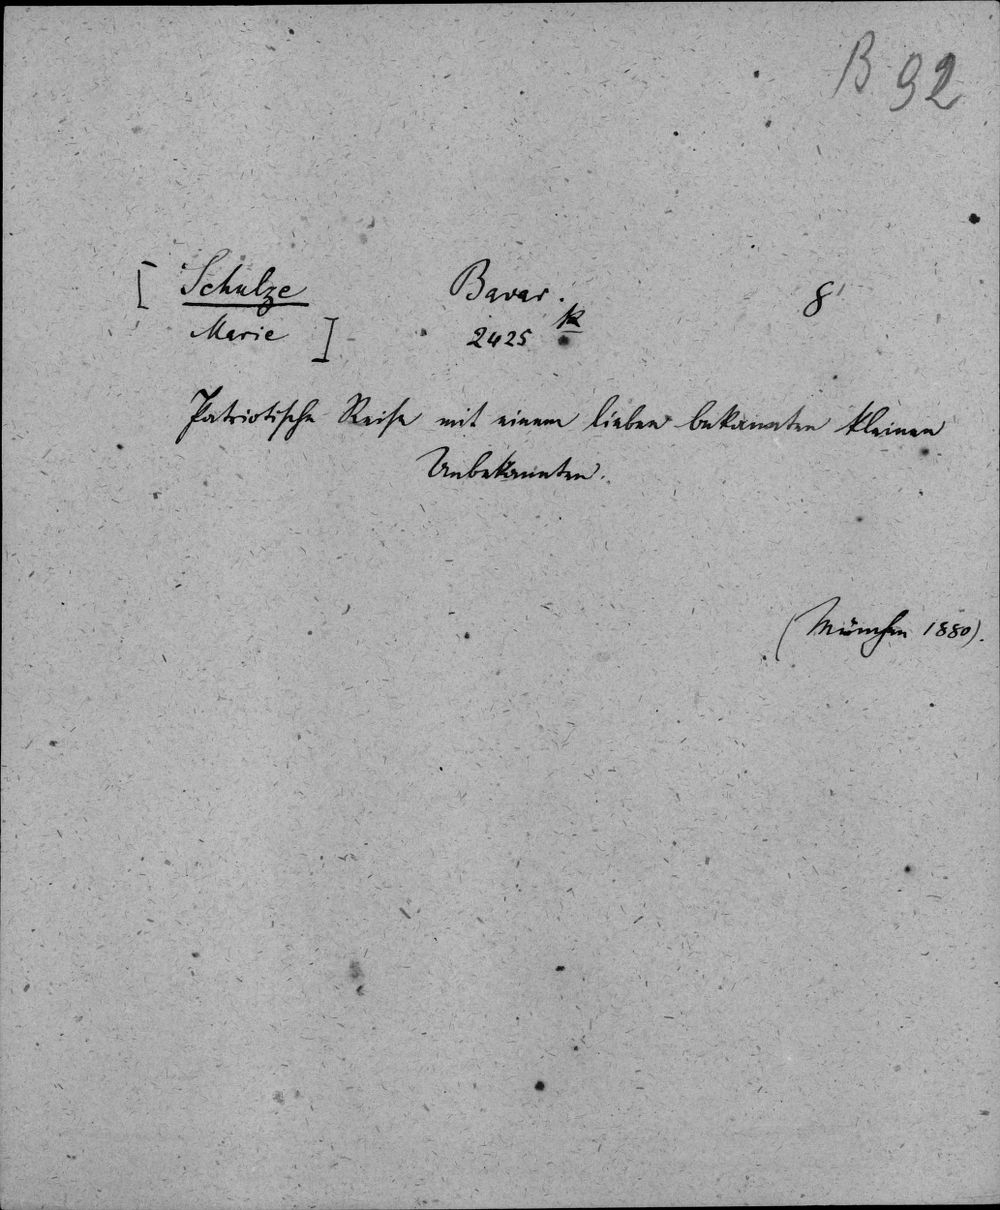 B 92
[ Schulze Bavar. 8'
Marie ] 2425 k
Patriotische Reise mit einem lieben bekannten kleinen
Unbekannten.
(München 1880).